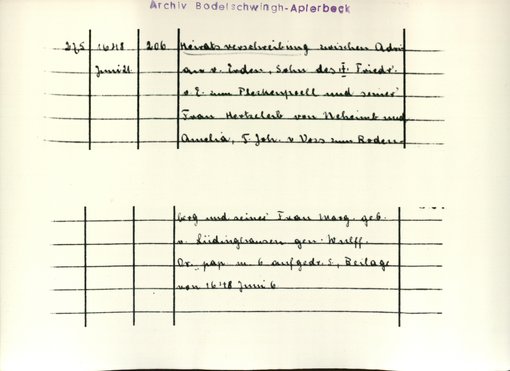 Archiv Bodelschwingh-Aplerbeck
275 1648 206 Heiratsverschreibung zwischen Adri
Juni 21. an v. Erden, Sohn des † Friedr.
v E. zum und seiner
Frau von Neheim und
Amelia, T. Joh. v Voss zum Roden-
berg und seiner Frau Marg. geb.
v. Lüdinghausen gen. Wulff.
Or. pap. m. 6 aufgedr. S., Beilage
von 1648 Juni 6